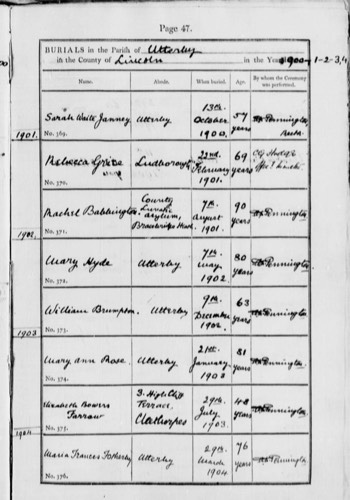 Page 47.
BURIALS in the Parish of Utterby
in the County of Lincoln in the Year 1900-1-2-3,4
Name. Abode. When buried. Age. By whom the Ceremony was performed.
Sarah Waite Janney Utterby 13th October 1900. 57 years Pennington
1901. No. 369.
Rebecca Grice Ludborough 22nd February 1901. 69 years
No. 370.
Rachel Babbington County Lunatic Asylum, Bracebridge Heath. 7th August 1901. 90 years Pennington
1902. No. 371.
Mary Hyde Utterby 7th May 1902. 80 years Pennington
No. 372.
William Brumpton. Utterby 9th December 1902. 63 years Pennington
1903 No. 373.
Mary Ann Rose. Utterby 21st January 1903 81 years Pennington
No. 374.
Elizabeth Bowers Farrow 3. High Cliff Terrace, Cleethorpes 29th July 1903. 48 years Pennington
1904 No. 375.
Maria Frances Fotherby Utterby 29th March 1904 76 years Pennington
No. 376.